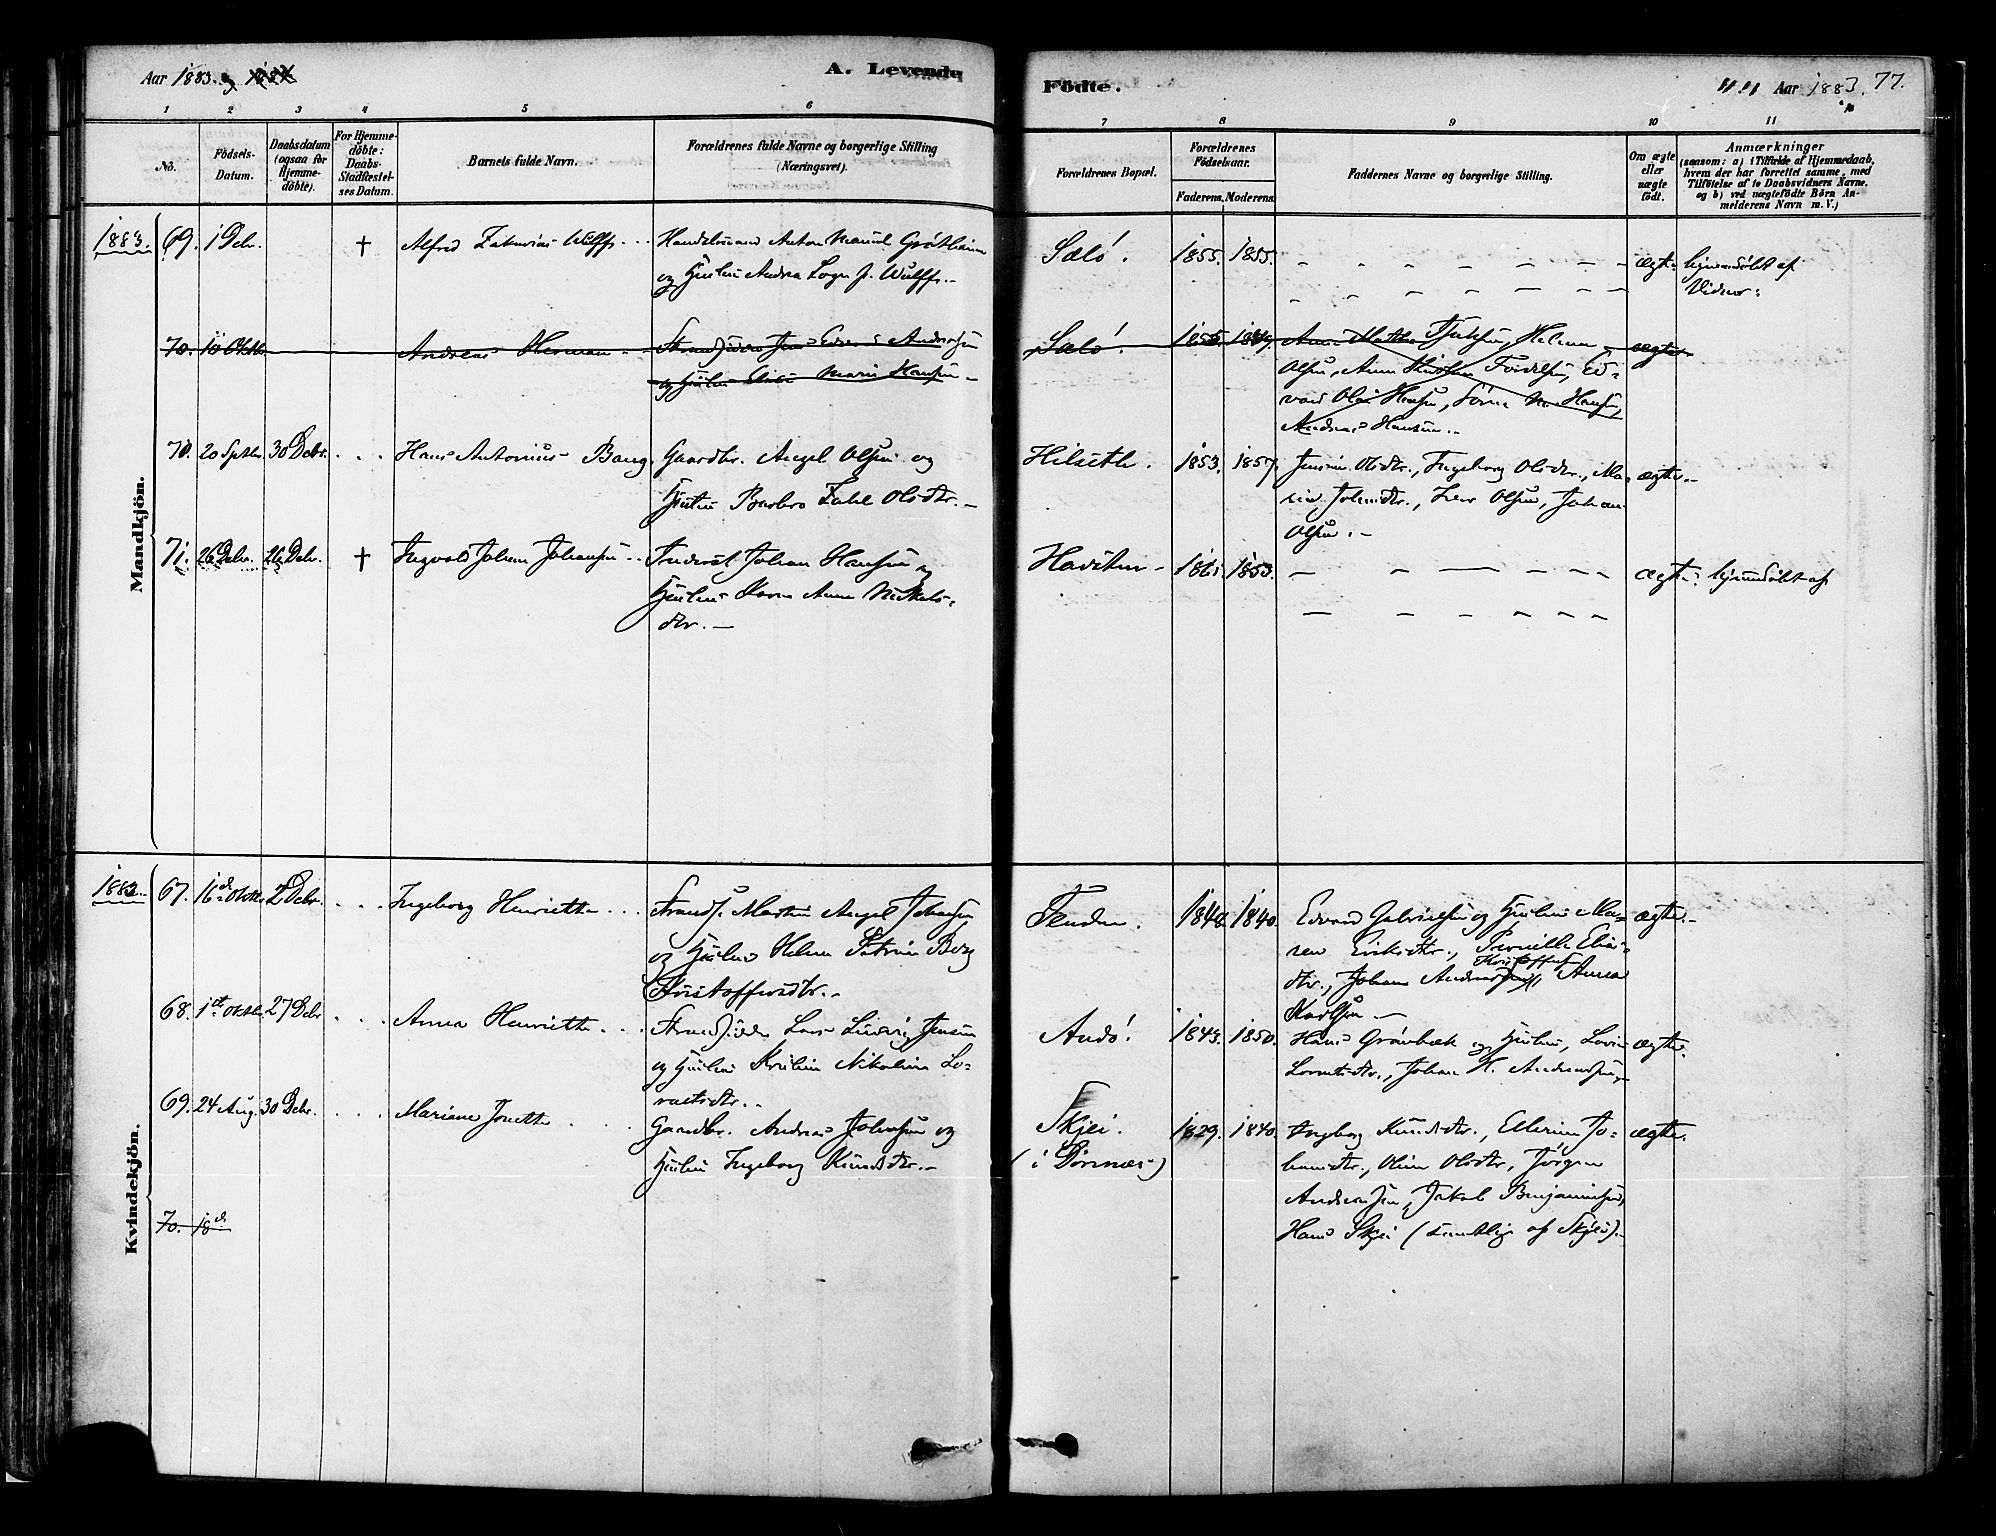 Aar 1883. og 1884
A. Levende
Födte.
" " Aar 1883. 77.
1 2 3 4 5 6
7 8 9 10 11
No.
Födsels-
Datum.
Daabsdatum
(ogsaa for
Hjemme-
döbte).
For Hjemme-
döbte:
Daabs-
Stadfæstel-
ses Datum.
Barnets fulde Navn.
Forældrenes fulde Navne og borgerlige Stilling
(Næringsvei).
Forældrenes Bopæl.
Forældrenes
Födselsaar.
Faderens. Moderens.
Faddernes Navne og borgerlige Stilling.
Om ægte
eller
uægte
födt.
Anmærkninger
(saasom: a) i Tilfælde af Hjemmedaab,
hvem der har forrettet samme, med
Tilföielse af to Daabsvidners Navne,
og b) ved uægtefödte Börn An-
melderens Navn m. V.)
Mandkjön.
1883. 69. 1 Debr. † Alfred Zakarias Wulff
Handelsmand Anton Manuel Gröthaim
og Hustru Andrea Sogn f. Wulff.
Sælö. 1855. 1855. ægte. hjemmedöbt af
Vidner:
70. 10 Oktb. Andreas Herman
Strandsidder Jens Edvard Andersen
og Hustru Elise Marie Hansen
Sælö. 1855. 1849. Helene ægte
Olsen, Anne
Hansen,
Andreas Hansen.
70. 20 Septbr. 30 Debr. Hans Antonius Bang
Gaardbr. Angel Olsen og
Hustru Barbro Zahl Olsdtr.
Hilseth. 1853. 1857. Jensine Olsdtr., Ingeborg Olsdtr., Ma- ægte.
Johansdtr., Olsen, Johan
Olsen.
71. 26 Debr. 26 Debr. † Ingvald Johan Johansen
Inderst Johan Hansen og
Hustru Anne Nikels-
dtr.
1861. 1853. ægte. hjemmedöbt af
Kvindekjön.
1883. 67. 16de Oktbr. 2 Debr. Ingeborg Henriette
Strands. Martin Angel Johansen
og Hustru Helene Petrine Berg
Kristoffersdtr.
1848. 1840. Edvard Gabrielsen og Hustru Ma- ægte.
ren Eriksdtr., Pernille Elias-
Kristoffersen
dtr., Johan Andersen, Anna
Karlsen
68. 1ste Oktbr. 27 Debr. Anna Henriette
Strandsidder Lars Ludvig Jensen
og Hustru Nikoline Lo-
rentsdtr.
Andö. 1843. 1850. Hans Grönbæk og Hustru, Lovise ægte.
Lorentsdtr., Johan H. Andersen,
69. 24 Aug. 30 Debr. Mariane Jonette
Gaardbr. Andreas Johnsen og
Hustru Ingeborg Knudsdtr.
Skjei.
1829. 1840. Ingeborg Knudsdtr., Ellerine Jo- ægte.
hansdtr., Oline Olsdtr., Jörgen
Andreassen, Jakob Benjaminsen,
Hans Skjei (samtlige af Skjei).
70. 18de